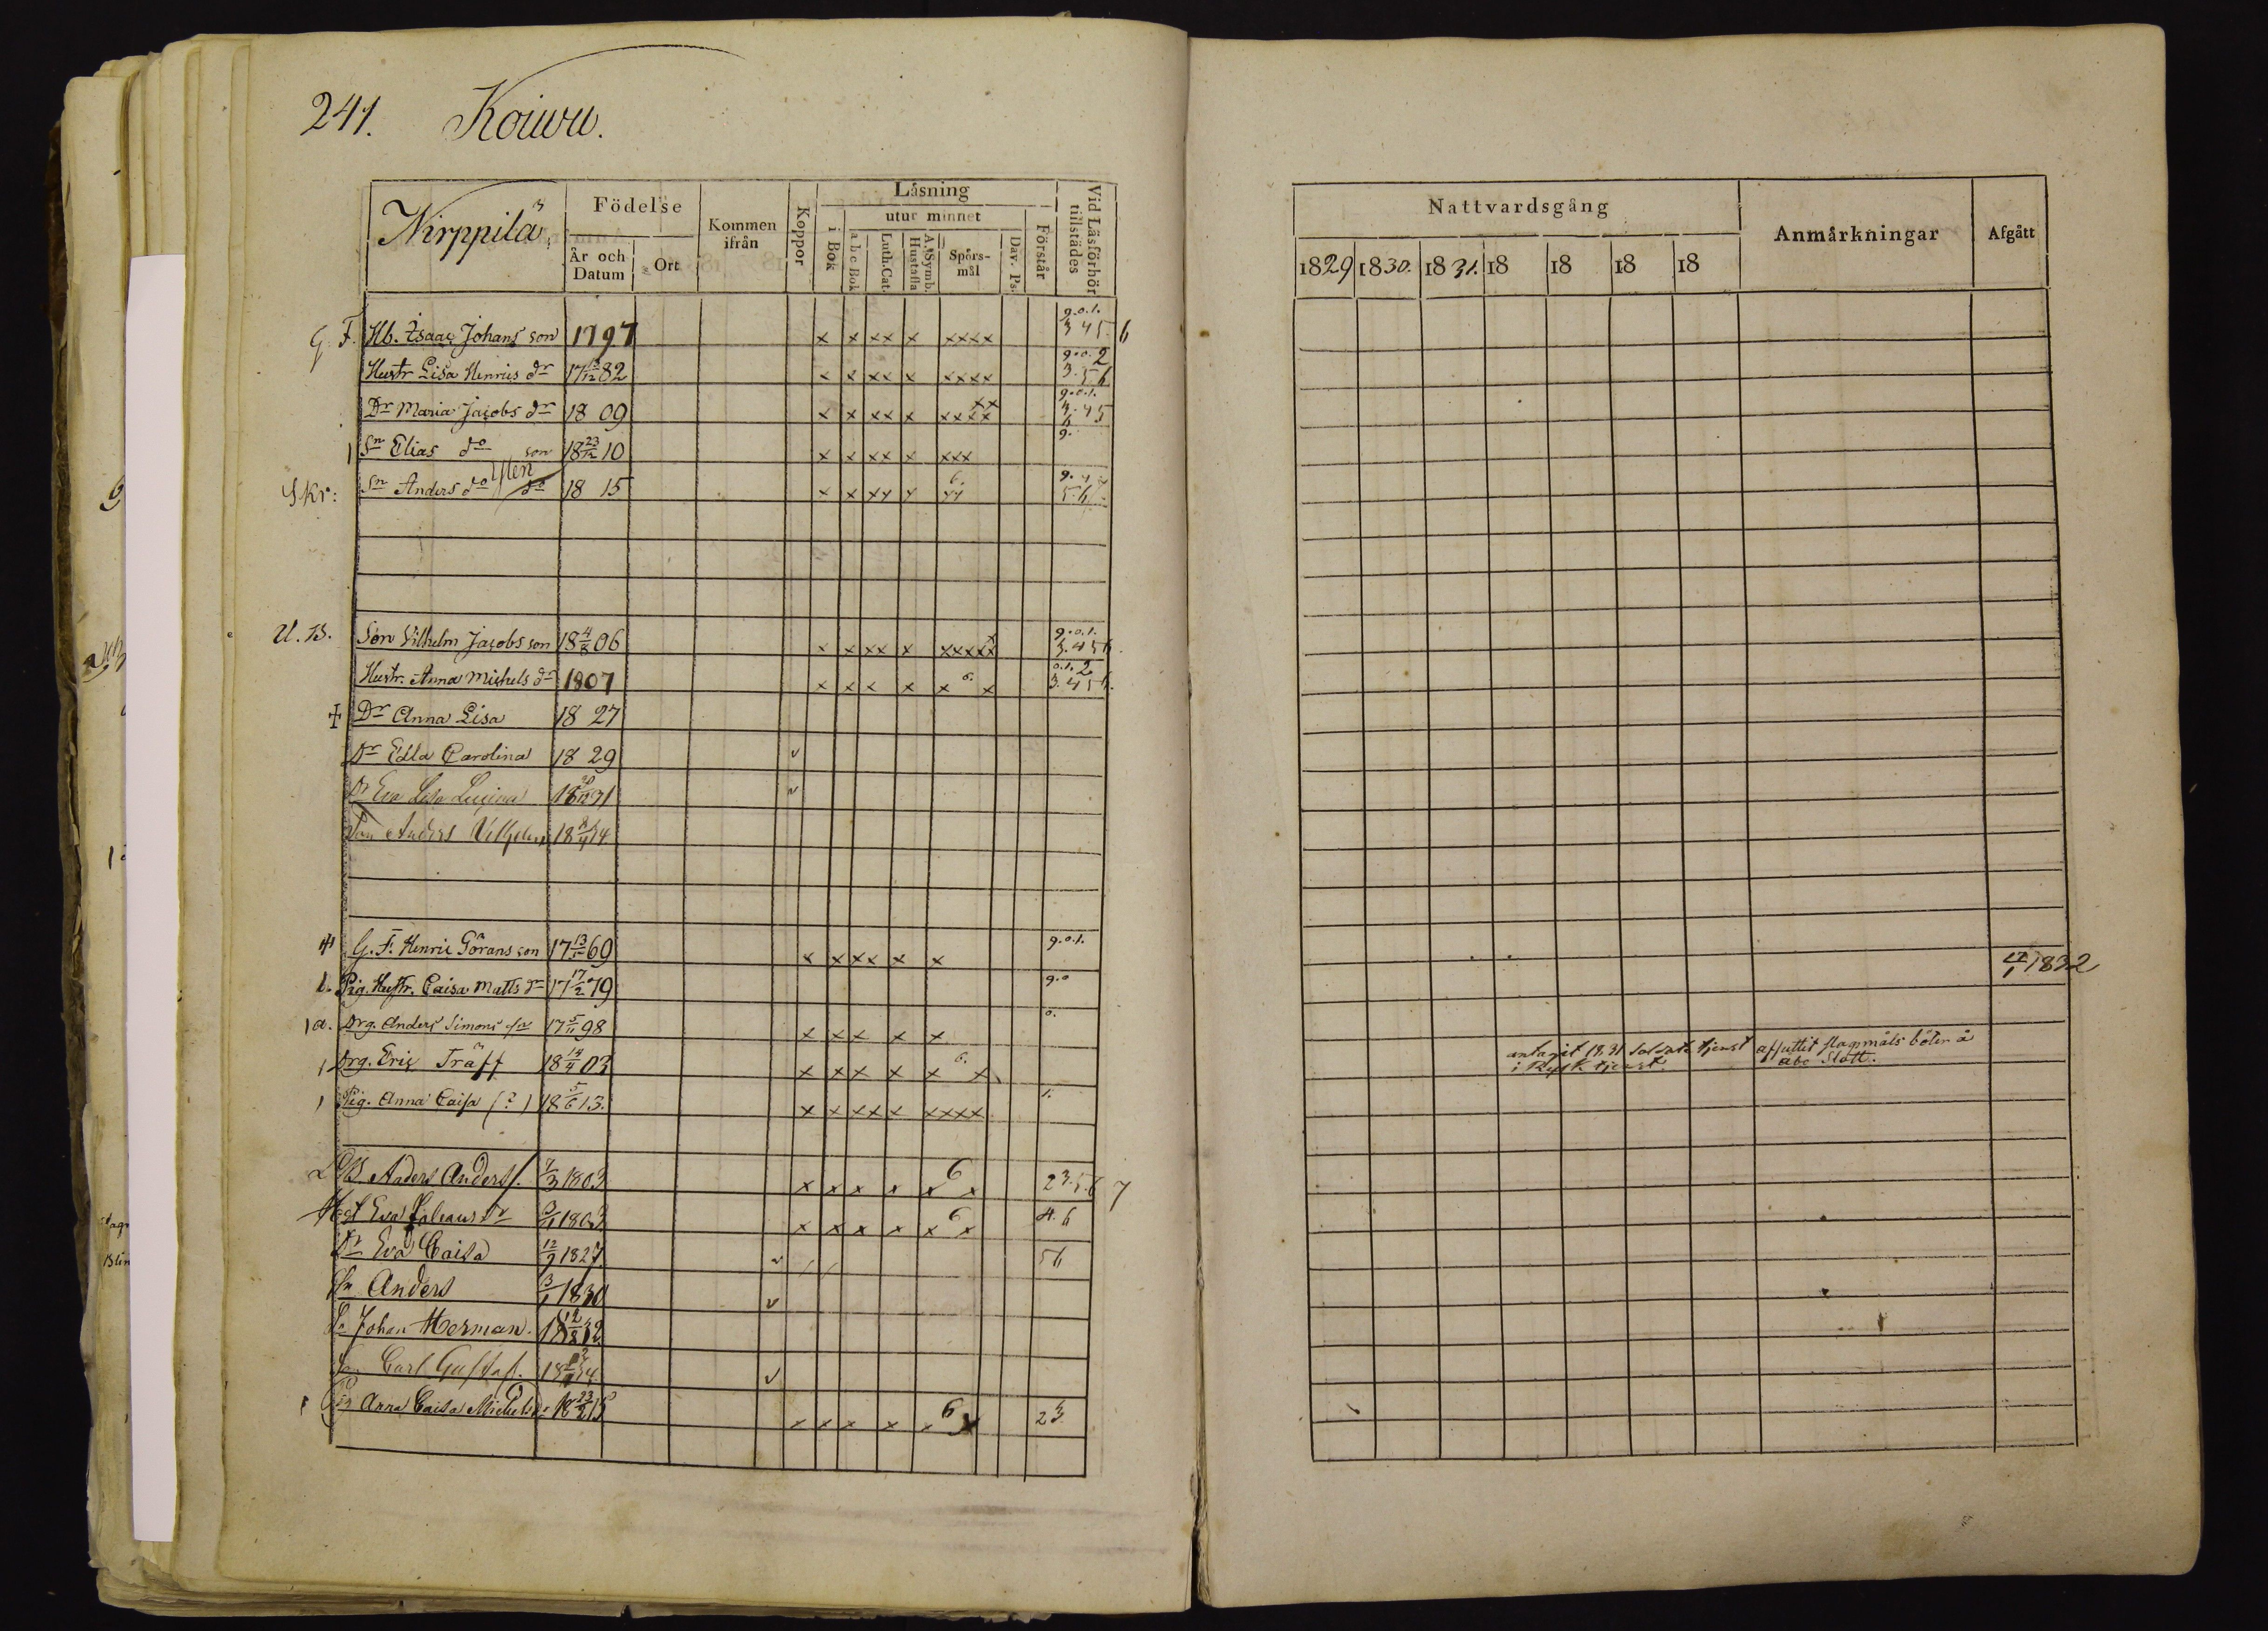 241. Koiwu.
Nirppilä
Födelse
År och Datum
Ort
Kommen ifrån
Koppor
Läsning
i Bok
utur minnet
a b c Bok
Luth. Cat.
A. Symb. Hustafla
Spörsmål
Dav. Ps.
Förstår
Vid Läsförhör tillstädes
G. F. Hb. Isaac Johans son 1797 x x xx x xxxx 9.0.1. 3 4 5. 6
Hustr Lisa Henrics dr 17 82 x x xx x xxxx 9.0.2 3.5 6
Dr Maria Jacobs dr 18 09 x x xx x xxxx xx 9.0.1. 3.45 6
1 Sn Elias do son 18 23/12 10 x x xx x xxx 9.
Skr: Sn Anders do do 18 15 x x xx x xx 6. 9. 5.6
U. B. Son Vilhelm Jacobs son 18 4/8 06 x x xx x xxxxx 9.0.1. 3.4 5 6.
Hustr. Anna Michels dr 1807 x x x x x 6. x 0.1.2 3.4 5 6.
Dr Anna Lisa 18 27
Dr Edla Carolina 18 29 v
Dr Eva Lisa 18 31 v
Son Anders Vilhelm 18 34
G. F. Henric Görans son 17 13/1 60 x x xx x x 9.0.1.
Pig. Hustr. Caisa Matts dr 17 17/2 79 9.0
1 a. Drg. Anders Simons sn 17 5/11 98 x x x x x 0.
1 Drg. Eric Träff 18 14/4 03 x x x x x 6. x
1 Pig. Anna Caisa (?) 18 5/6 13. x x xx x xxxx 1.
Anders Anders s. 7/3 1803 x x x x x 6 x 2 3.5.6 7
Eva Johans dr 1803 x x x x x 6 x 4. 6
Dr Eva Caisa 12/9 1827 v 5 6
Sn Anders 3/1 1830 v
Sn Johan Herman. 18 12/8 32
Son Carl Gustaf. 18 34 v
Pig Anna Caisa Michels dr 18 23/2 15 x x x x x 6 x 2 3
Nattvardsgång
1829 1830. 1831. 18 18 18 18
Anmärkningar
Afgått
1832
antagit 1831 Soldate tjenst
i Rysk tjenst.
afsuttit slagsmåls böter å
Åbo Slott.